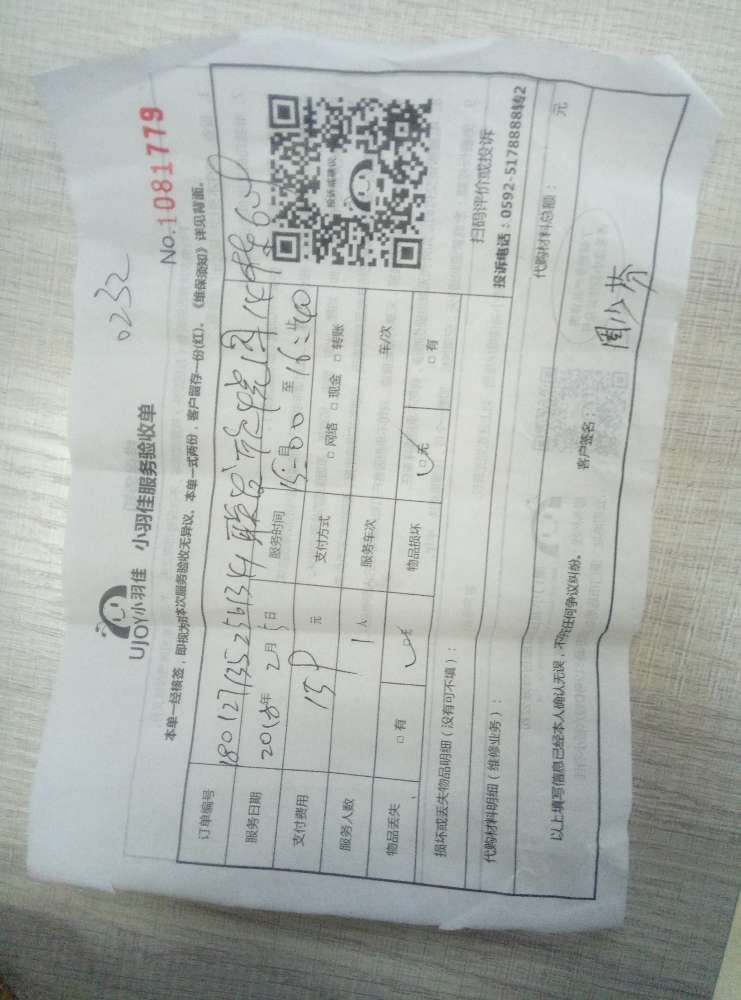 0232
UJOY小羽佳 小羽佳服务验收单
No.1081779
本单一经核签，即视为对本次服务验收无异议，本单一式两份，客户留存一份(红)，《维保须知》详见背面。
订单编号 180127135256134
服务日期 2018年 2月 5日 服务时间 15:00 至 16:40
支付费用 159 元 支付方式 □网络 □现金 □转账
服务人数 1 人 服务车次 车/次
物品丢失 □有 □无 物品损坏 □无 □有
投诉或建议
扫码评价或投诉
投诉电话：0592-5178888转2
损坏或丢失物品明细（没有可不填）：
代购材料明细（维修业务）： 代购材料总额： 元
以上填写信息已经本人确认无误，不存任何争议纠纷。 客户签名： 周少芬